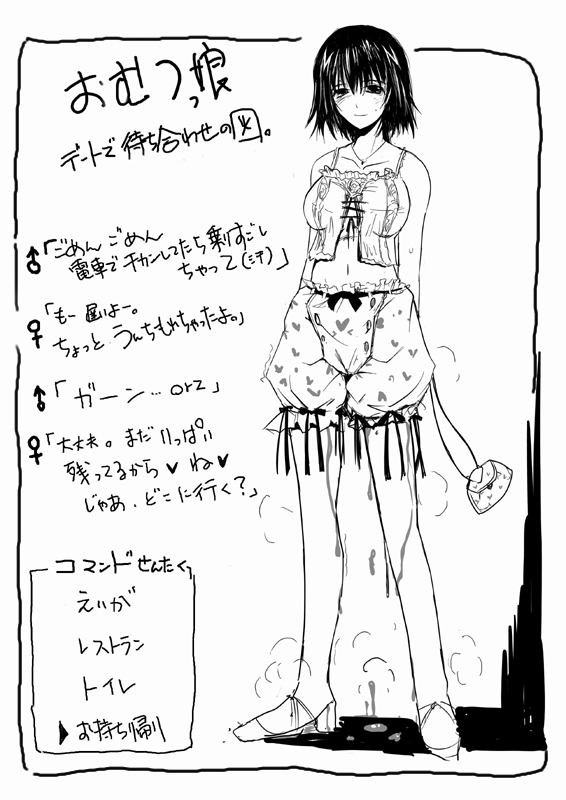 おむつっ娘
デートで待ち合わせの図。
♂「ごめん ごめん
電車でチカンしてたら乗すごし
ちゃって(ミ子)」
♀「もー遅いよー。
ちょっと うんちもれちゃったよ。」
♂「ガーン…orz」
♀「大丈夫。まだいっぱい
残ってるから♥ね♥
じゃあ、どこに行く?」
コマンドせんたく
えいが
レストラン
トイレ
▶お持ち帰り